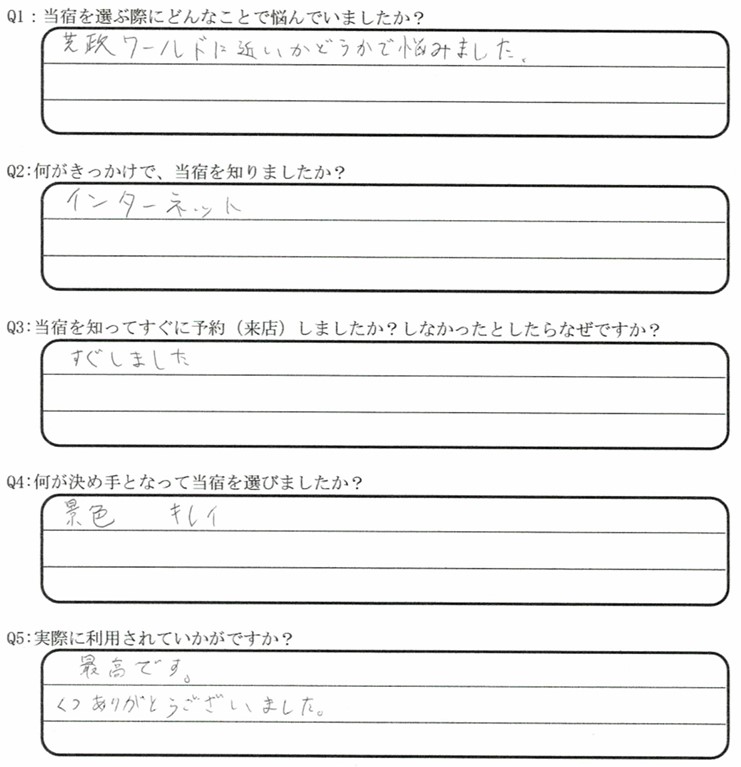 Q1：当宿を選ぶ際にどんなことで悩んでいましたか？
芝政ワールドに近いかどうかで悩みました。
Q2:何がきっかけで、当宿を知りましたか？
インターネット
Q3:当宿を知ってすぐに予約（来店）しましたか？しなかったとしたらなぜですか？
すぐしました
Q4:何が決め手となって当宿を選びましたか？
景色　キレイ
Q5:実際に利用されていかがですか？
最高です。
ありがとうございました。